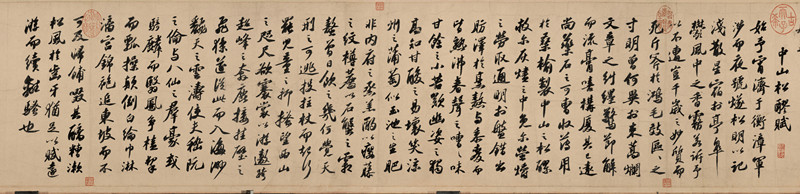 中山松醪賦
始予宵濟於衡漳軍
涉而夜號燧松明以記
淺散星宿於亭皋
鬱風中之香霧若訴予
以不遭豈千歲之妙質而
死斤斧於鴻毛效區區之
寸明曾何異於束蒿爛
文章之糾纏驚節解
而流膏嗟構廈其已遠
尚藥石之可曹收薄用
於桑榆製中山之松醪
救尔灰燼之中免尔螢爝
之勞取通明於盤錯出
肪澤於烹熬與黍麥而
皆熟沸舂聲之嘈嘈味
甘餘之小苦歎幽姿之獨
高知甘酸之易壞笑涼
州之蒲萄似玉池之生肥
非內府之烝羔酌以癭藤
之紋樽薦以石蟹之霜
螯曾日飲之幾何覺天
刑之可逃投拄杖而起行
罷兒童之抑搔望西山
之咫尺欲褰裳以游遨跨
超峰之奔鹿接挂壁之
飛猱遂從此而入海渺
翻天之雲濤使夫嵇阮
之倫與八仙之羣豪或
騎麟而翳鳳爭榼挈
而瓢操顛倒白綸巾淋
漓宮錦袍追東坡而不
可及歸餔歠其醨糟漱
松風於齒牙猶足以賦遠
游而續離騷也